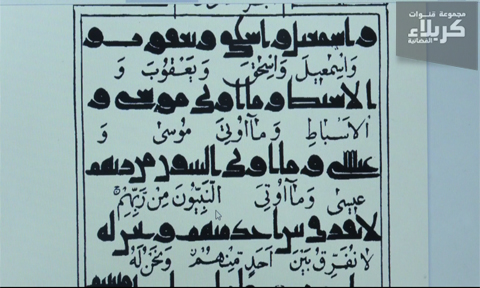 مجموعة قنوات
كربلاء
الفضائية
و اسمعيل و اسحق و يعقوب و
وَاِسْمٰعِيلَ وَاِسْحٰقَ وَيَعْقُوبَ وَ
الاسباط و ما اوتى موسى و
الْاَسْبَاطِ وَمَآ اُوتِيَ مُوسٰى وَ
عيسى و ما اوتى النبيون من ربهم
عِيسٰى وَمَآ اُوتِيَ النَّبِيُّونَ مِنْ رَبِّهِمْ
لا نفرق بين احد منهم و نحن له
لَا نُفَرِّقُ بَيْنَ اَحَدٍ مِنْهُمْ وَنَحْنُ لَهُ